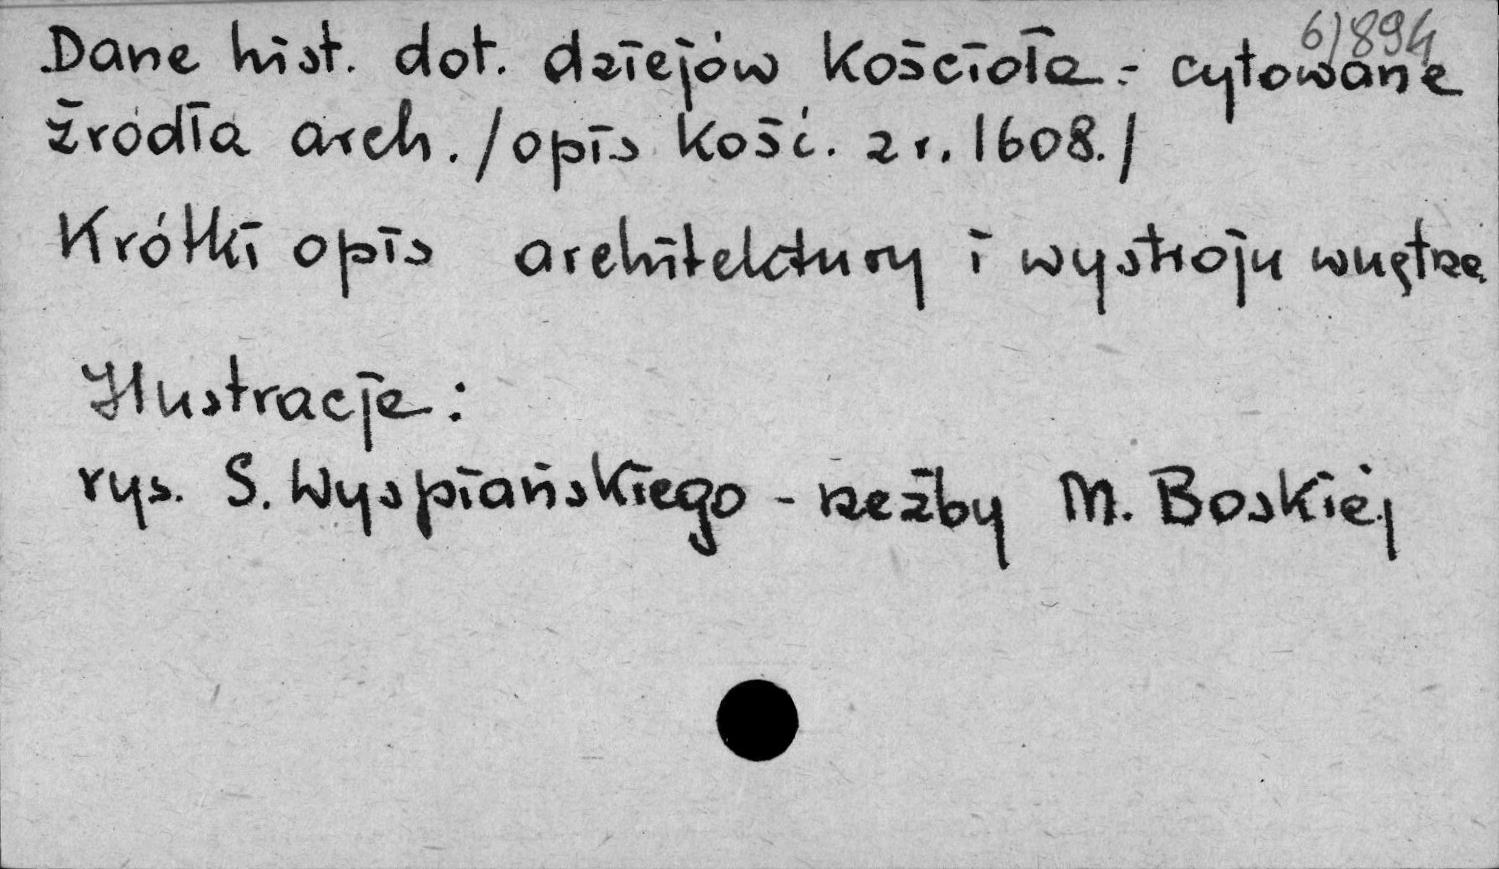 6/894
Dane hist. dot. dziejów kościoła - cytowane
źródła arch. /opis kość. z r. 1608./
Krótki opis architektury i wystroju wnętrza
Ilustracje:
rys. S. Wyspiańskiego - rzeźby M. Boskiej